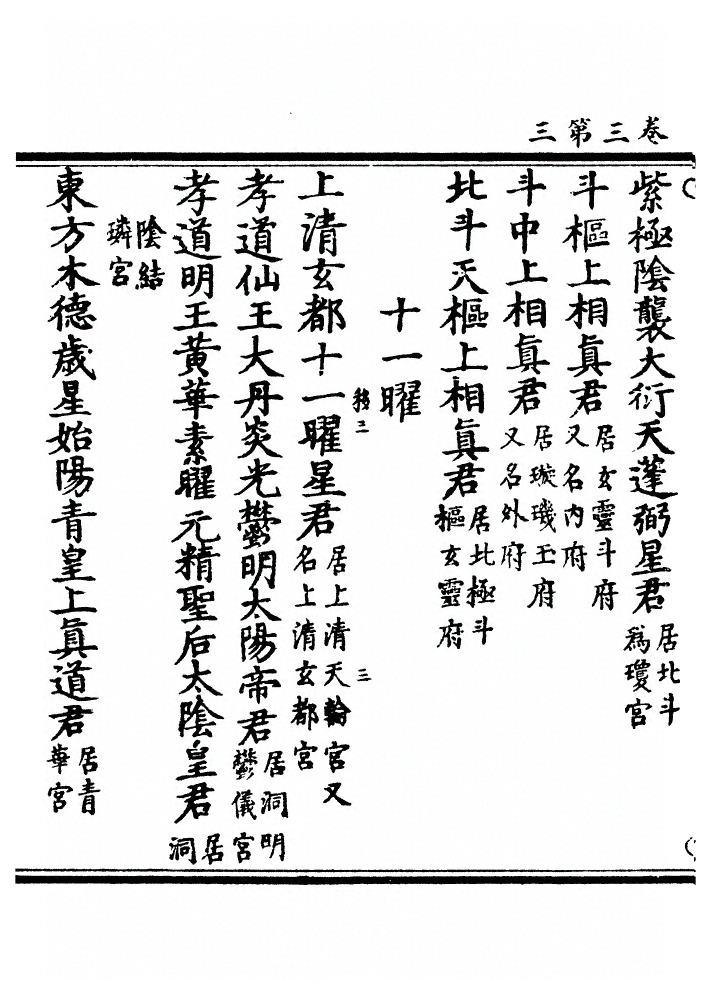 卷三第三
紫極陰襲大衍天蓬弼星君居北斗爲瓊宮
斗樞上相眞君居玄靈斗府又名內府
斗中上相眞君居璇璣玉府又名外府
北斗天樞上相眞君居北極斗樞玄靈府
十一曜
上清玄都十一曜星君居上清天輪宮又名上清玄都宮
孝道仙王大丹炎光鬱明太陽帝君居洞明鬱儀宮
孝道明王黃華素曜元精聖后太陰皇君居洞
陰結璘宮
東方木德歲星始陽青皇上眞道君居青華宮
三